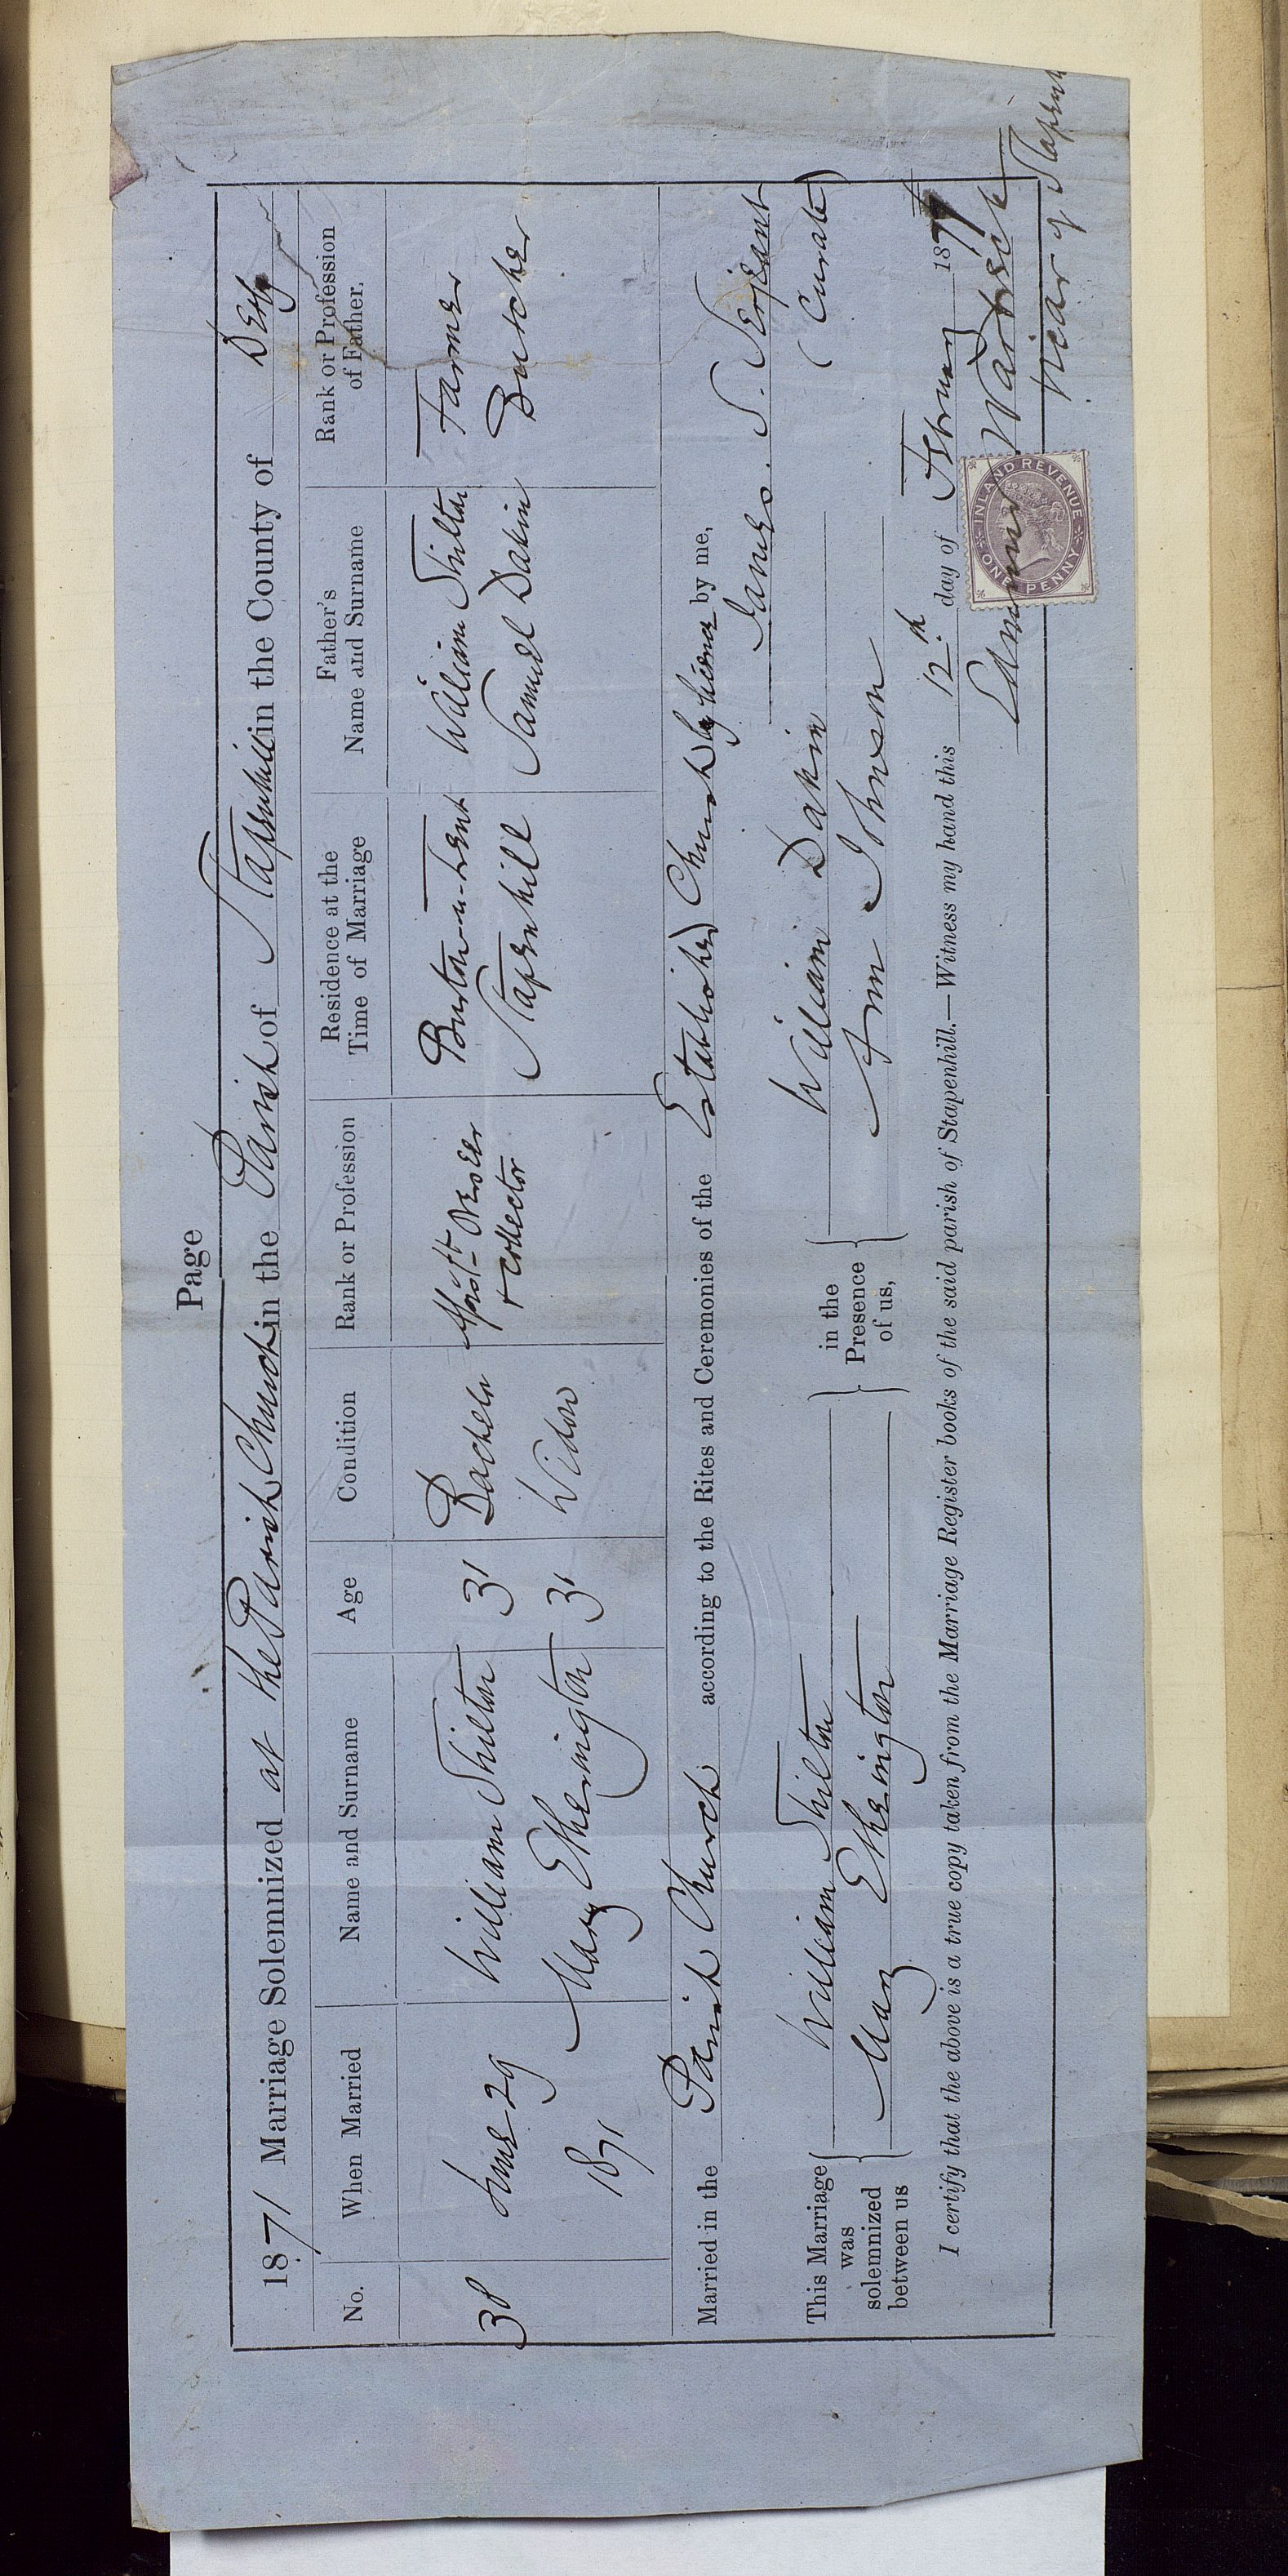 Page
1871 Marriage Solemnized at the Parish Church in the Parish of Stapenhill in the County of Derby
No.
When Married
Name and Surname
Age
Condition
Rank or Profession
Residence at the Time of Marriage
Father's Name and Surname
Rank or Profession of Father.
38
June 29 1871
William Shilton 31 Bachelor & Collector Burton-u-Trent William Shilton Farmer
Mary Etherington 31 Widow Stapenhill Samuel Dakin Butcher
Married in the Parish Church according to the Rites and Ceremonies of the Established Church by licence by me,
James. S. Serjeant
(Curate)
This Marriage was solemnized between us
William Shilton
Mary Etherington
in the Presence of us,
William Dakin
Ann Johnson
I certify that the above is a true copy taken from the Marriage Register books of the said parish of Stapenhill.—Witness my hand this 12th day of February 187
Edmund Warbrick
Vicar of Stapenh
INLAND REVENUE
ONE PENNY